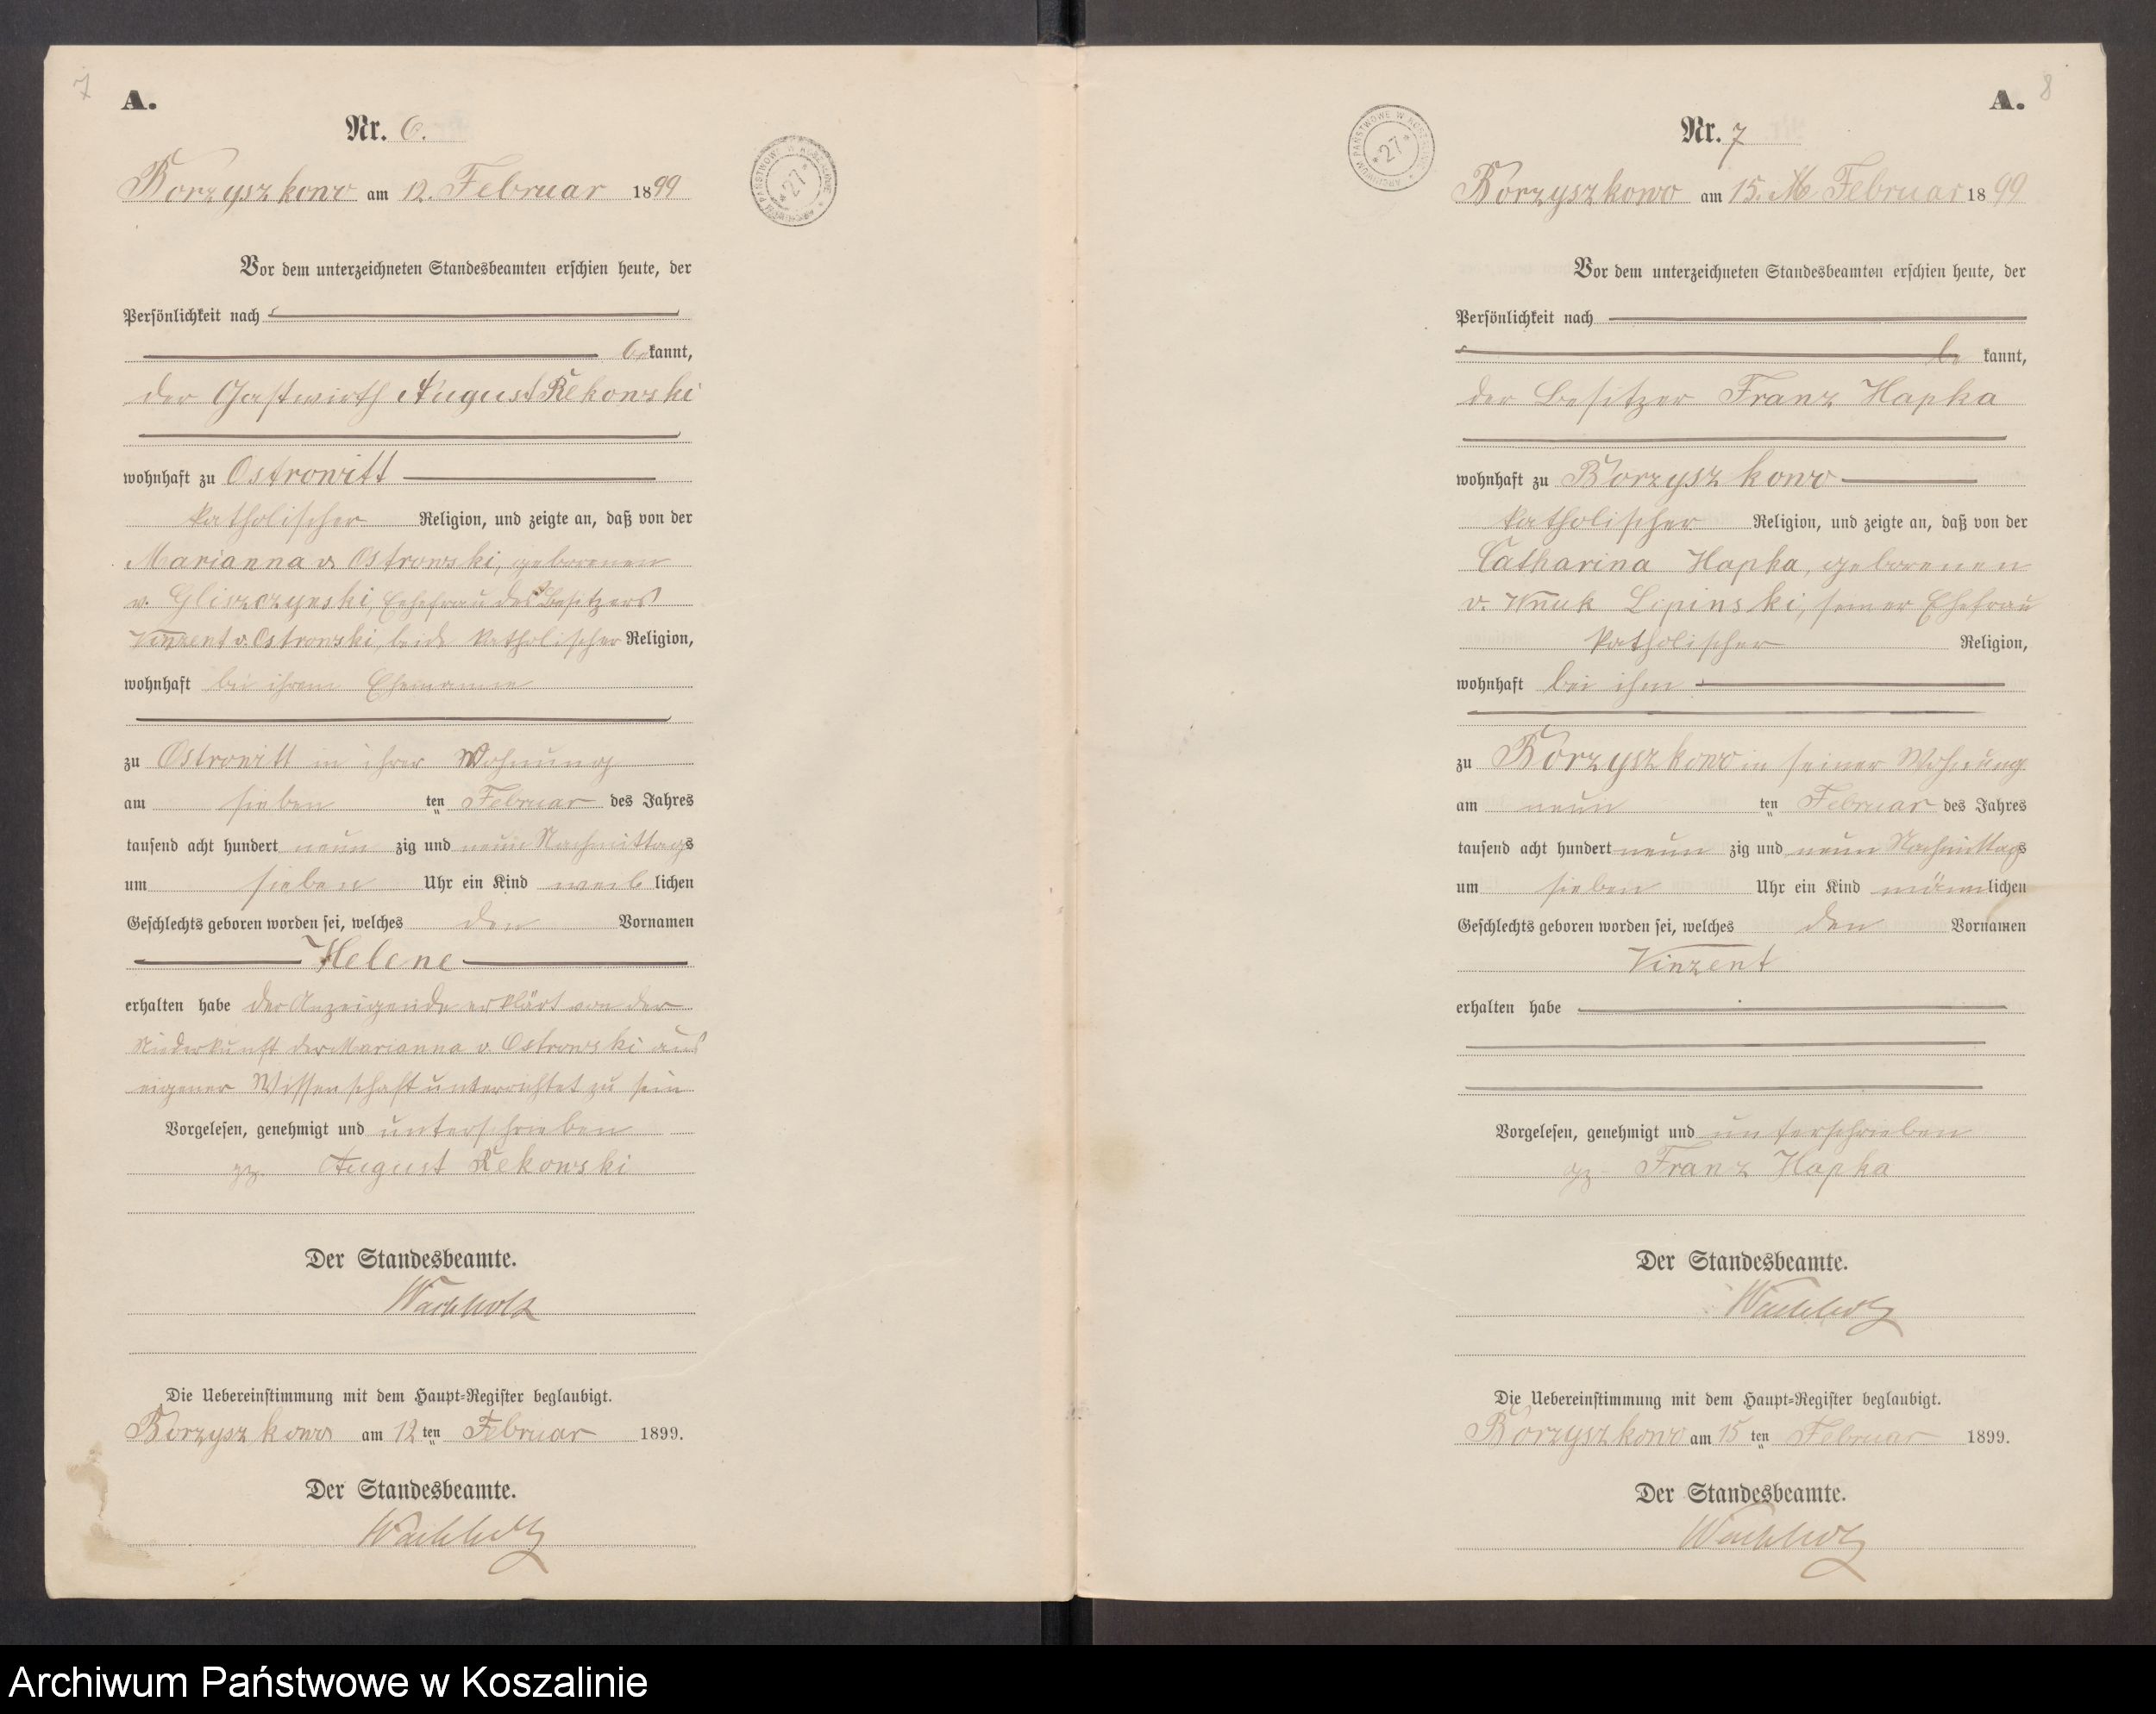 7
A.
Nr. 6.
Borzyszkowo am 12. Februar 1899
Vor dem unterzeichneten Standesbeamten erschien heute, der
Persönlichkeit nach
bekannt,
der Gastwirth August Rekowski
wohnhaft zu Ostrowitt
katholischer Religion, und zeigte an, daß von der
Marianna v. Ostrowski, geborenen
v. Gliszczynski, Ehefrau des Besitzers
Vinzent v. Ostrowski, beide katholischer Religion,
wohnhaft bei ihrem Ehemanne
zu Ostrowitt in ihrer Wohnung
am sieben ten Februar des Jahres
tausend acht hundert neun zig und neun Nachmittags
um sieben Uhr ein Kind weib lichen
Geschlechts geboren worden sei, welches den Vornamen
Helene
erhalten habe der Anzeigende erklärt von der
Niederkunft der Marianna v Ostrowski aus
eigener Wissenschaft unterrichtet zu sein
Vorgelesen, genehmigt und unterschrieben
gz. August Rekowski
Der Standesbeamte.
Wachholz
Die Uebereinstimmung mit dem Haupt-Register beglaubigt.
Borzyszkowo am 12 ten Februar 1899.
Der Standesbeamte.
Wachholz
ARCHIWUM PAŃSTWOWE W KOSZALINIE
* 27 *
8
A.
Nr. 7
ARCHIWUM PAŃSTWOWE W KOSZALINIE
* 27 *
Borzyszkowo am 15. Februar 1899
Vor dem unterzeichneten Standesbeamten erschien heute, der
Persönlichkeit nach
be kannt,
der Besitzer Franz Hapka
wohnhaft zu Borzyszkowo
katholischer Religion, und zeigte an, daß von der
Catharina Hapka, geborenen
v. Wnuk Lipinski, seiner Ehefrau
katholischer Religion,
wohnhaft bei ihm
zu Borzyszkowo in seiner Wohnung
am neun ten Februar des Jahres
tausend acht hundert neun zig und neun Nachmittags
um sieben Uhr ein Kind männlichen
Geschlechts geboren worden sei, welches den Vornamen
Vinzent
erhalten habe
Vorgelesen, genehmigt und unterschrieben
gz. Franz Hapka
Der Standesbeamte.
Wachholz
Die Uebereinstimmung mit dem Haupt-Register beglaubigt.
Borzyszkowo am 15 ten Februar 1899.
Der Standesbeamte.
Wachholz
Archiwum Państwowe w Koszalinie